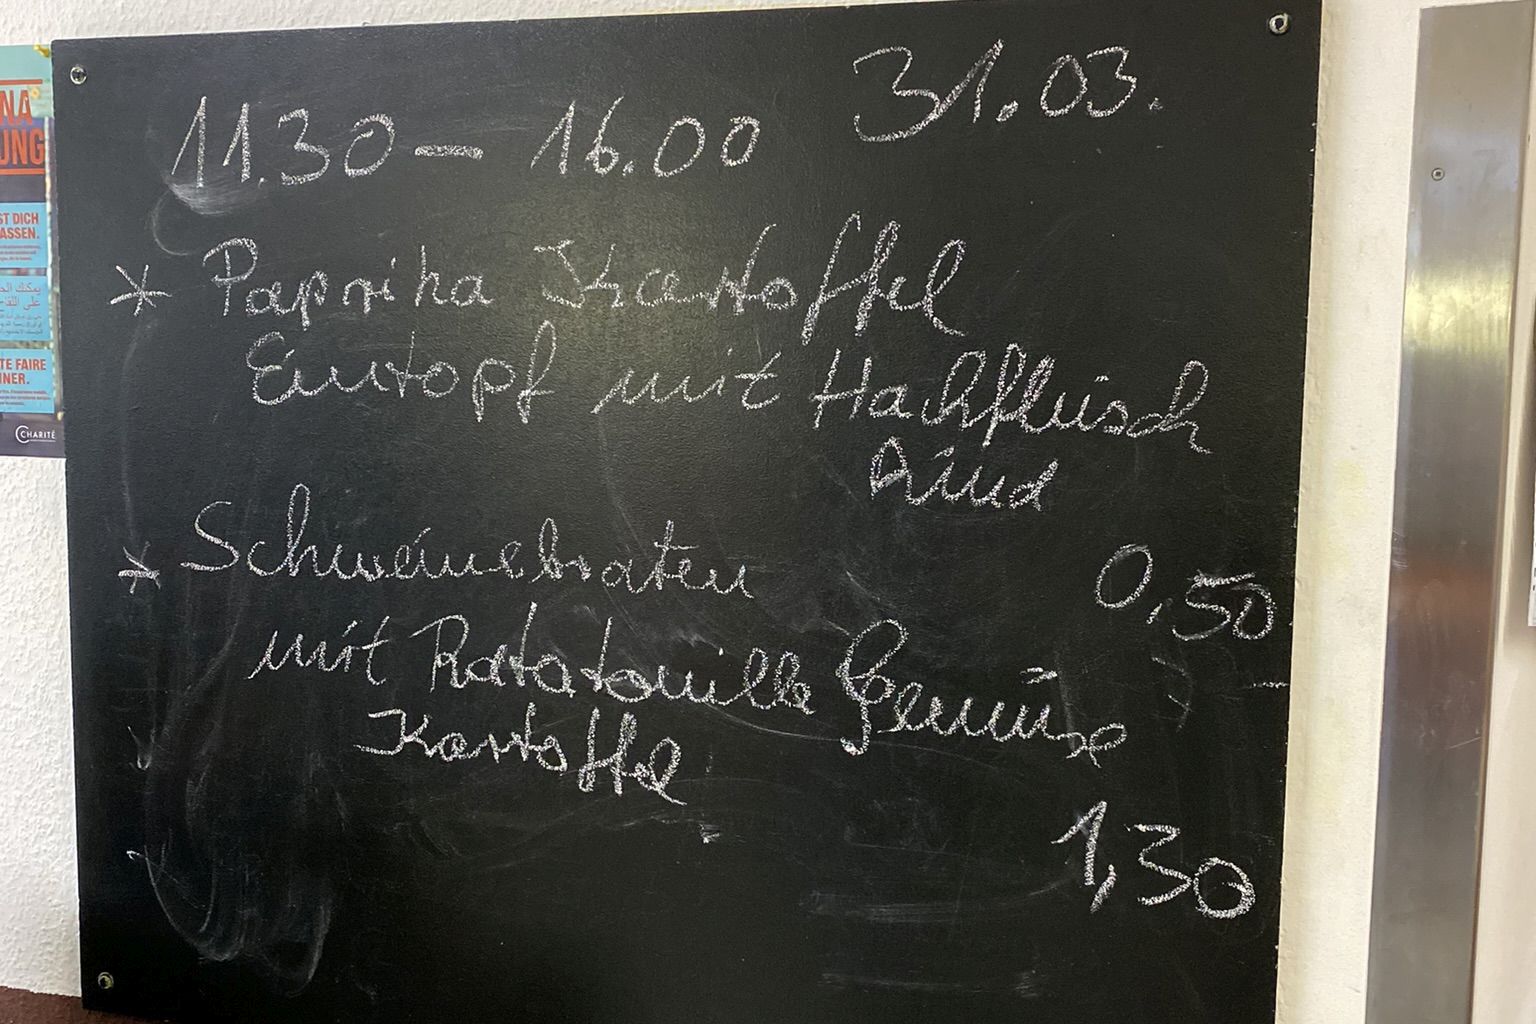 31.03.
11.30 – 16.00
* Paprika Kartoffel
Eintopf mit Hackfleisch
Rind
0,50
* Schweinebraten
mit Ratatouille Gemüse
Kartoffel
1,30
NA
UNG
ST DICH
ASSEN.
TE FAIRE
INER.
CHARITÉ